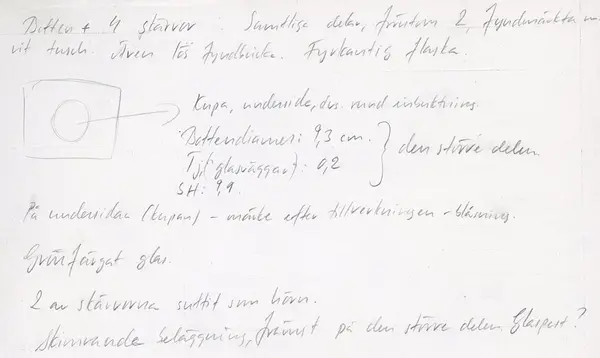 Botten + 4 skärvor. Samtliga delar, förutom 2, fyndmärkta m
vit tusch. Även lös fyndbricka. Fyrkantig flaska.
Kupa, undersida, dvs. rund inbuktning.
Bottendiameter: 9,3 cm.
Tj (glasväggar): 0,2
SH: 9,9.
den större delen
På undersidan (kupan) - märke efter tillverkningen - blåsning.
Grönfärgat glas.
2 av skärvorna suttit som hörn.
Skimrande beläggning, främst på den större delen. Glaspest?